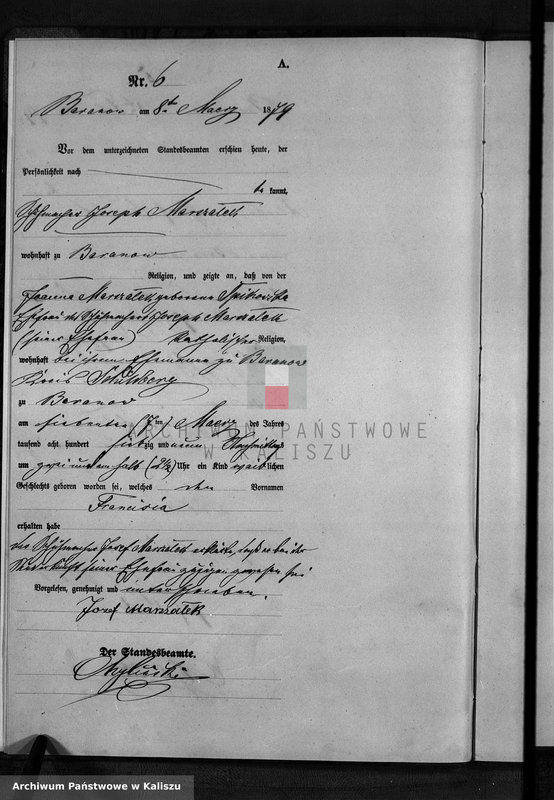 A.
Nr. 6
Baranow am 8ten Maerz 1879
Vor dem unterzeichneten Standesbeamten erschien heute, der
Persönlichkeit nach
be kannt,
Schuhmacher Joseph Marszalek
wohnhaft zu Baranow
Religion, und zeigte an, daß von der
Joanna Marszalek geborene
Ehefrau des Schuhmachers Joseph Marszalek
(seiner Ehefrau) katholischer Religion,
wohnhaft bei ihrem Ehemanne zu Baranow
Kreis Schildberg
zu Baranow
am siebenten (7ten) Maerz des Jahres
tausend acht hundert siebzig und neun Nachmittags
um zwei und ein halb (2½) Uhr ein Kind weiblichen
Geschlechts geboren worden sei, welches den Vornamen
Francisia
erhalten habe
der Schuhmacher Josef Marszalek erklärte, daß er bei der
Niederkunft seiner Ehefrau zugegen gewesen sei
Vorgelesen, genehmigt und unterschrieben.
Josef Marszalek
Der Standesbeamte.
ARCHIWUM PAŃSTWOWE
W KALISZU
Archiwum Państwowe w Kaliszu